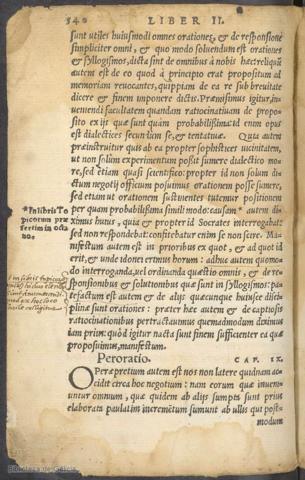 54
LIBER II.
sunt utiles huiusmodi omnes orationes, & de responsione
simpliciter omni, & quo modo soluendum est orationes
& syllogismos, dicta sint de omnibus à nobis hæc: reliquũ
autem est de eo quod à principio erat propositum ad
memoriam reuocantes, quippiam de ea re sub breuitate
dicere & finem imponere dictis. Præmisimus igitur, in-
ueniendi facultatem quandam ratiocinatiuam de propo-
sito ex ijs quæ sunt quàm probabilissima: id enim opus
est dialectices secundùm se, & tentatiuæ. Quia autem
præinstruitur quis ab ea propter sophistices uicinitatem,
ut non solùm experimentum possit sumere dialectico mo-
re, sed etiam quasi scientifico: propter id non solum di-
ctum negotij officium posuimus orationem posse sumere,
sed etiam ut orationem sustinentes tutemur positionem
per quàm probabilissima simili modo: causam * autem di-
ximus huius, quia & propter id Socrates interrogabat:
sed non respondebat: confitebatur enim se non scire. Ma-
nifestum autem est in prioribus ex quot, & ad quot id
erit, & unde idonei erimus horum: adhuc autem quomo-
do interroganda, uel ordinanda quæstio omnis, & de re-
sponsionibus & solutionibus quæ sunt in syllogismos: pa-
tefactum est autem & de alijs quæcunque huiusce disci-
plinæ sunt orationis: præter hæc autem & de captiosis
ratiocinationibus pertractauimus quemadmodum diximus
iam prius: quòd igitur nacta sunt finem sufficienter ea quæ
proposuimus, manifestum.
*In libris To
picorum præ
sertim in octa
uo.
Peroratio. CAP. IX.
Operæpretium autem est nos non latere quidnam ac-
cidit circa hoc negotium: nam eorum quæ inueni-
untur omnium, quæ quidem ab alijs sumpta sunt prius
elaborata paulatim incremẽtum sumunt ab illis qui post-
modum
Biblioteca de Galicia